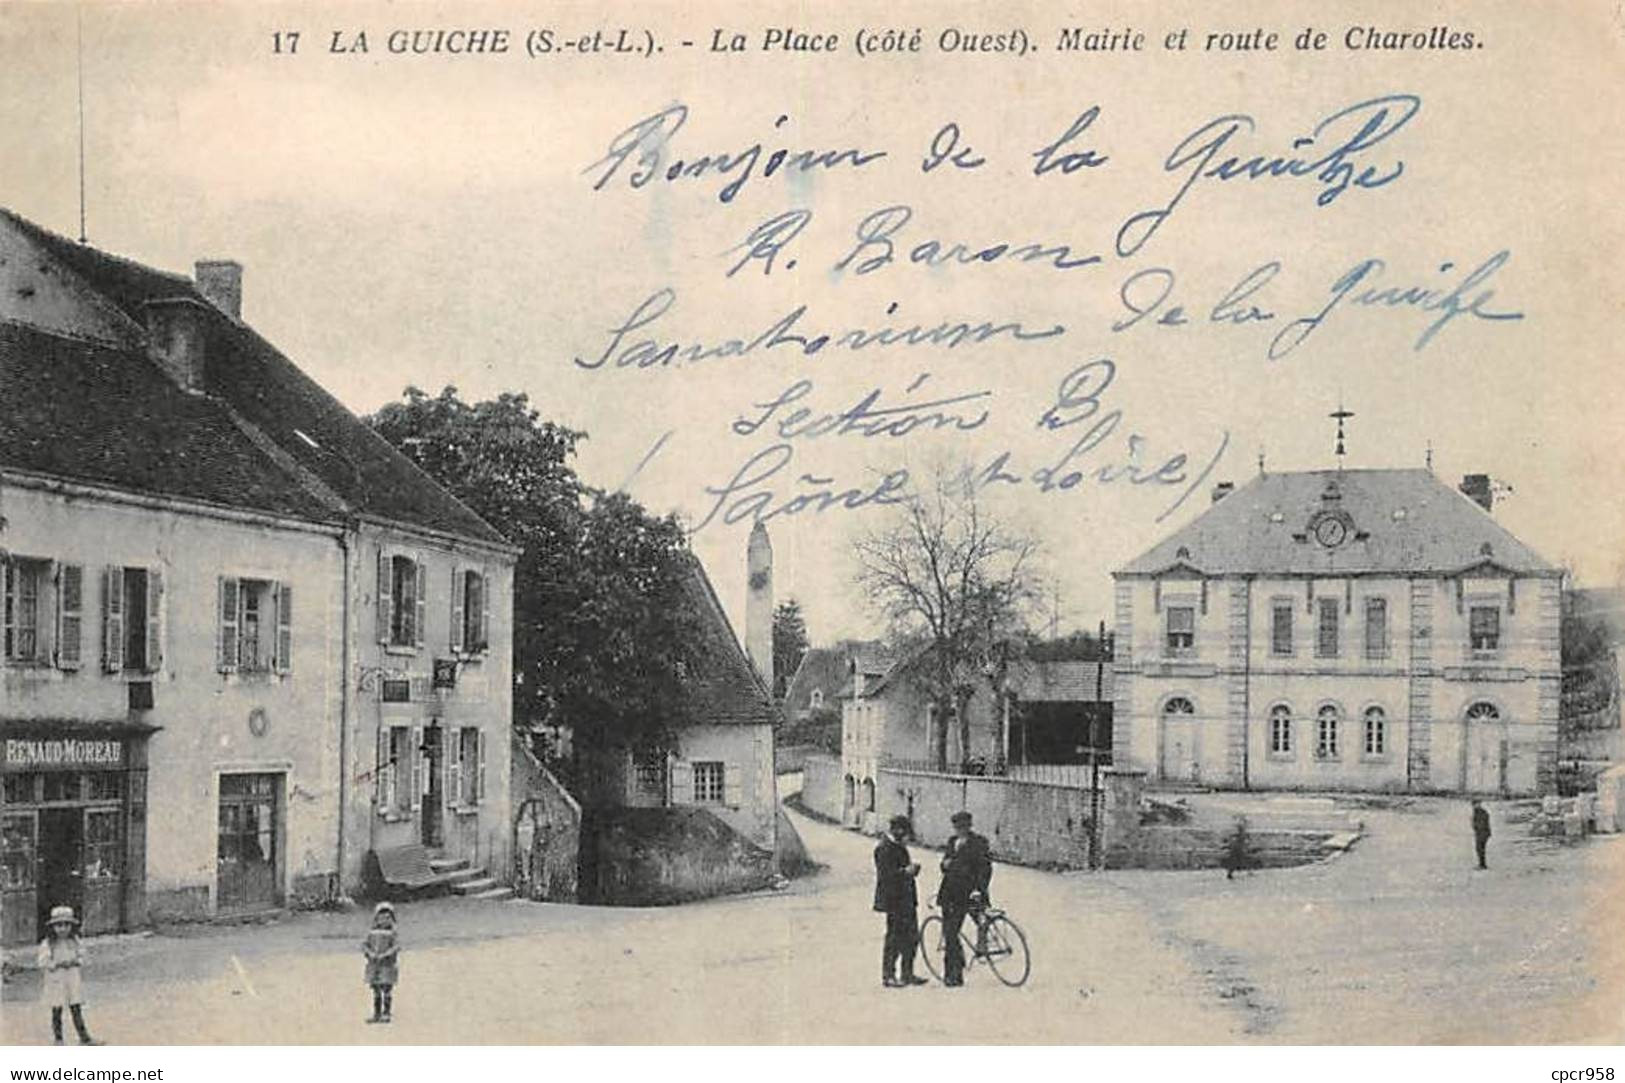 17 LA GUICHE (S.-et-L.). - La Place (côté Ouest). Mairie et route de Charolles.
Bonjour de la Guiche
R. Baron
Sanatorium de la Guiche
Section B
(Saône et Loire)
RENAUD-MOREAU
www.delcampe.net
cpcr958